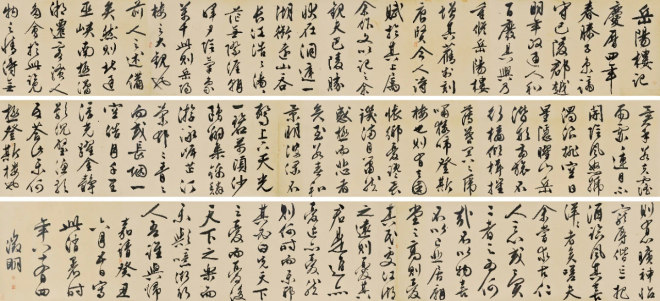 岳陽樓記
慶曆四年
春滕子京謫
守巴陵郡越
明年政通人和
百廢具興乃
重修岳陽樓
增其舊制刻
唐賢今人詩
賦於其上屬
余作文以記之余
觀夫巴陵勝
狀在洞庭一
湖銜遠山吞
長江浩浩湯
無際涯朝
暉夕陰氣象
萬千此則岳陽
樓之大觀也
前人之述備
矣然則北通
巫峽南極瀟
湘遷客騷人
多會於此覽
物之情得無
異乎若夫霪
雨霏霏連月不
開陰風怒號
濁浪排空日
星隱曜山岳
潛形商旅不
行檣傾楫摧
薄暮冥冥虎
嘯猿啼登斯
樓也則有去國
懷鄉憂讒畏
譏滿目蕭然
感極而悲者
矣至若春和
景明波瀾不
驚上下天光
一碧萬頃沙
鷗翔集錦鱗
游泳岸芷汀
蘭郁郁青青
而或長煙一
空皓月千里
浮光耀金靜
影沉璧漁歌
互答此樂何
極登斯樓也
則有心曠神怡
寵辱偕忘把
酒臨風其喜洋
洋者矣嗟夫
余嘗求古仁
人之心或異
二者之為何
哉不以物喜
不以己悲居廟
堂之高則憂
其民處江湖
之遠則憂其
君是進亦
憂退亦憂然
則何時而樂邪
其必曰先天下
之憂而憂後
天下之樂而
樂歟噫微斯
人吾誰與歸
嘉靖癸丑
六月日寫
此時
年八十四
徵明